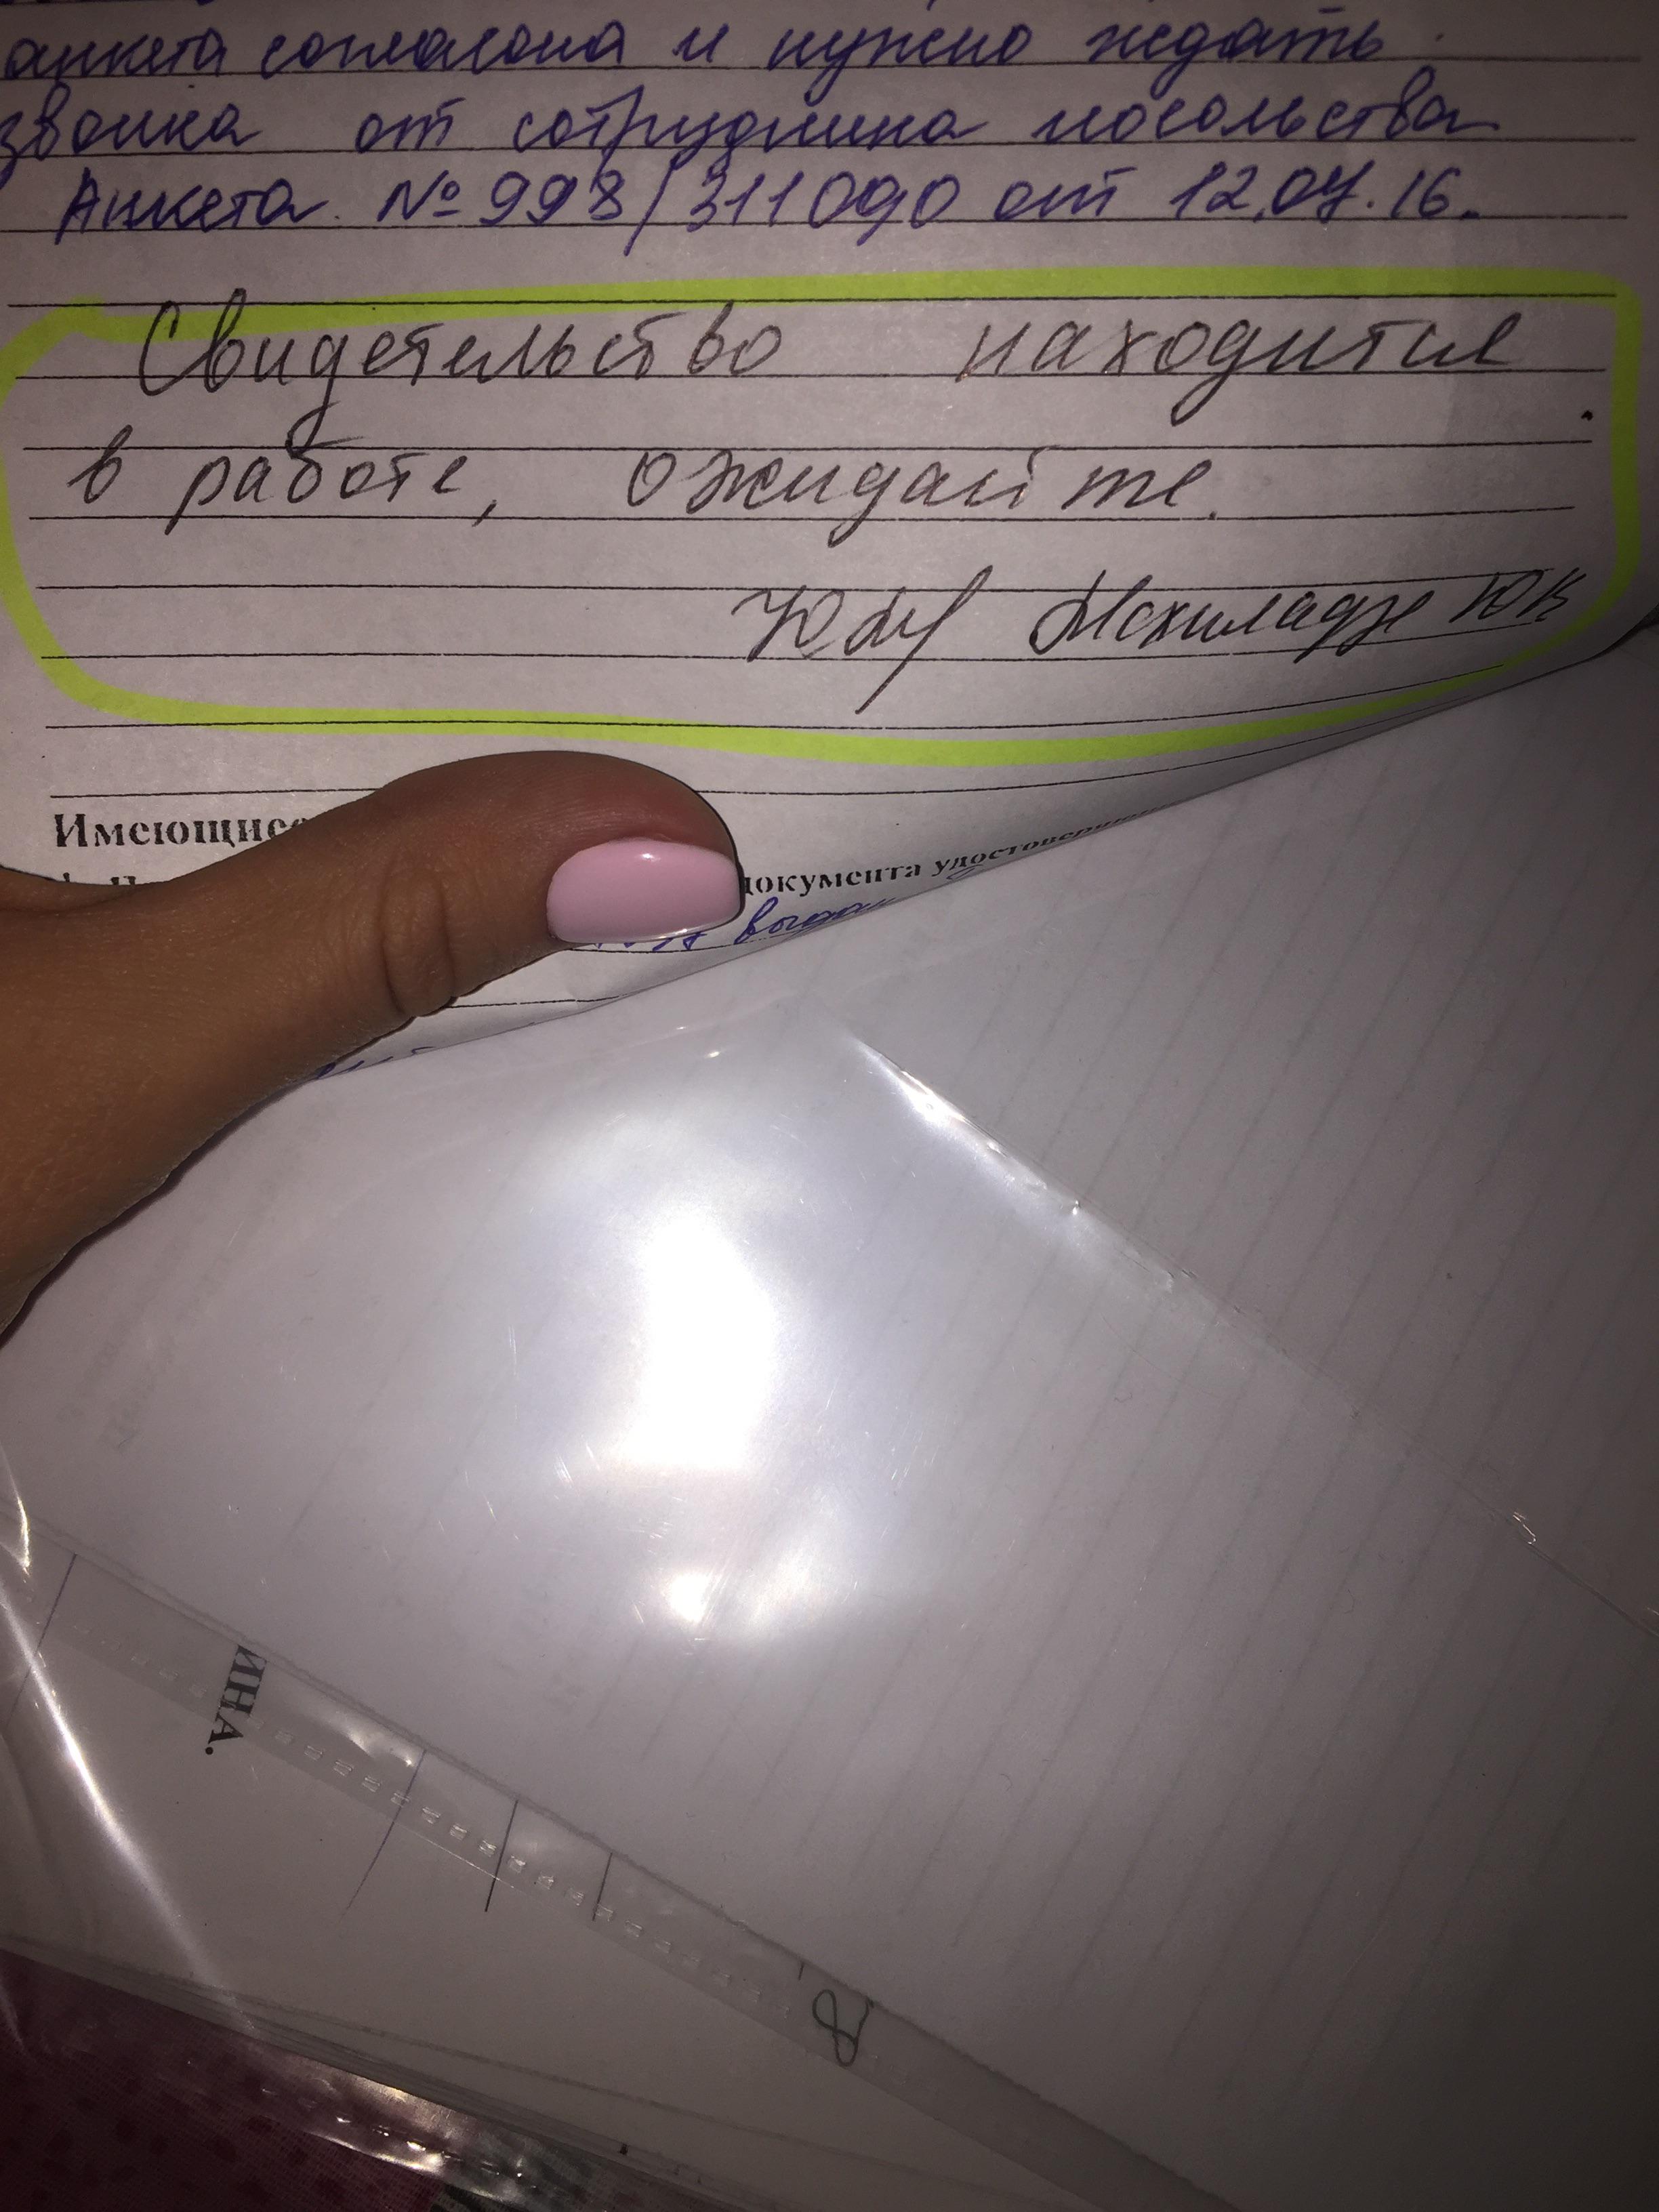 анкета согласона и нужно ждать
звонка от сотрудника посольства
Анкета № 998/311090 от 12.07.16.
Свидетельство находится
в работе, ожидайте.
Мсхиладзе ЮК
Имеющиес
документа удостоверяю
выдан
ИНА.
8